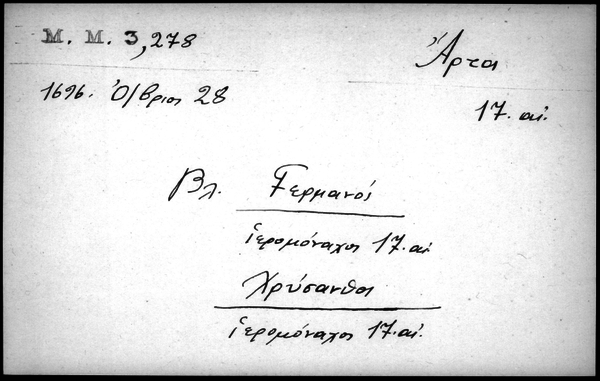 Μ. Μ. 3,278
Ἄρτα
1696. Ὀ/βριος 28
17. αἰ.
Βλ. Γερμανός
ἱερομόναχος 17. αἰ.
Χρύσανθος
ἱερομόναχος 17. αἰ.